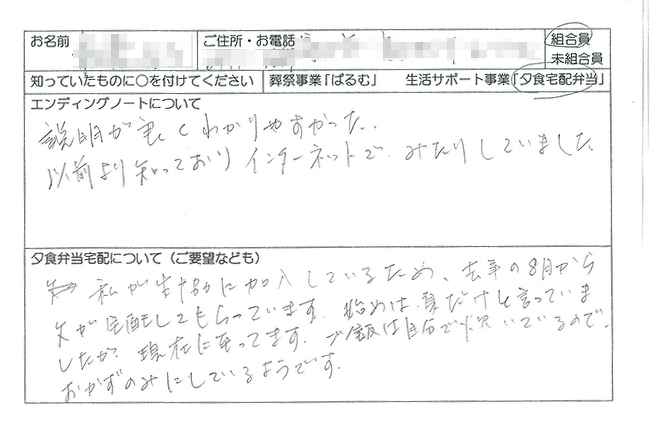 お名前
ご住所・お電話
組合員
未組合員
知っていたものに○を付けてください
葬祭事業「ぱるむ」
生活サポート事業「夕食宅配弁当」
エンディングノートについて
説明が良くわかりやすかった。
以前より知っており インターネットで みたりしていました
夕食弁当宅配について（ご要望なども）
私が生協に加入しているため、去年の8月から
父が宅配してもらっています。始めは夏だけと言っていま
したが 現在に至ってます。ご飯は自分で炊いているので、
おかずのみにしているようです。